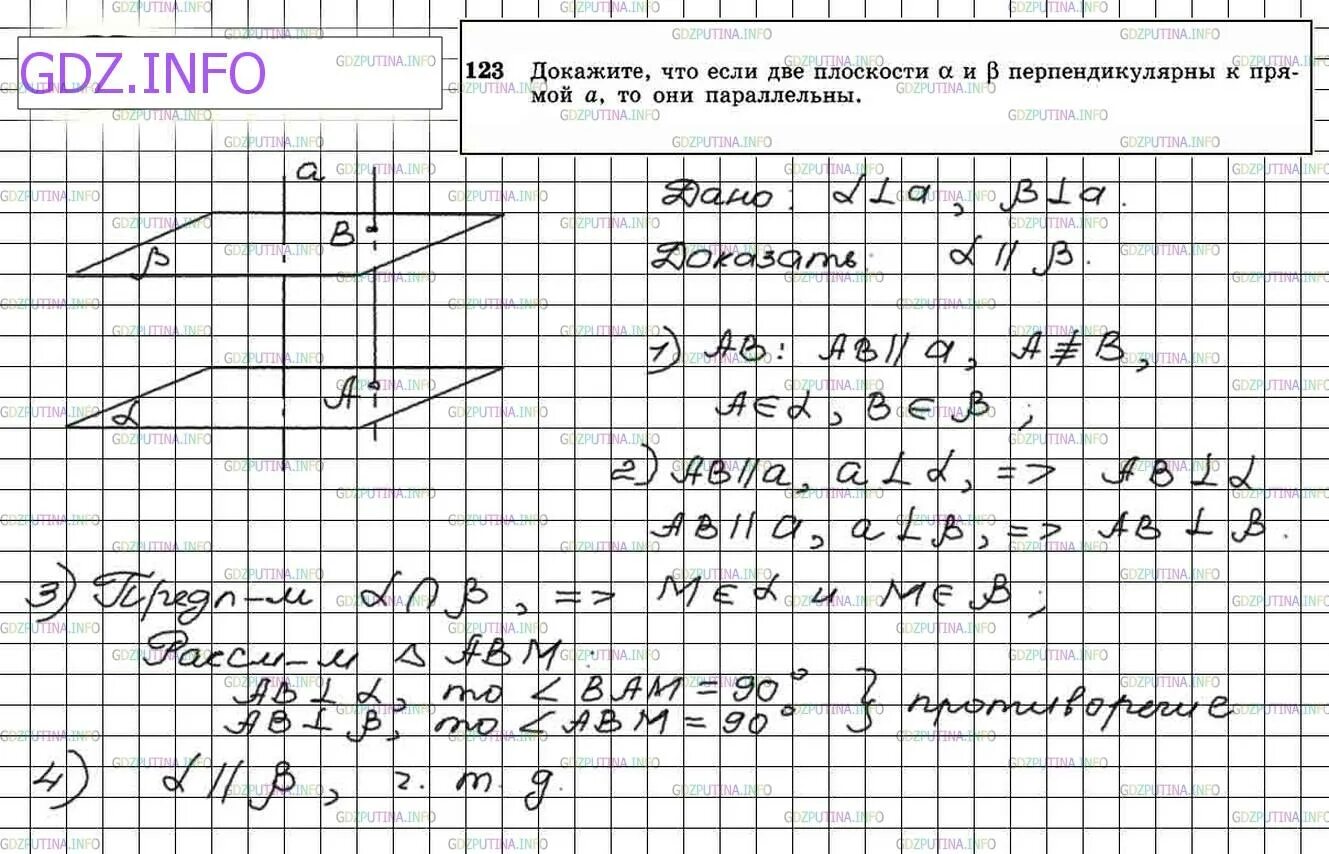 GDZ.INFO
123 Докажите, что если две плоскости α и β перпендикулярны к пря-
мой a, то они параллельны.
a
B
β
A
α
Дано: α⊥a, β⊥a.
Доказать: α ∥ β.
1) AB: AB∥a, A≢B,
A∈α, B∈β;
2) AB∥a, a⊥α, => AB⊥α
AB∥a, a⊥β, => AB⊥β.
3) Предп-м α∩β, => M∈α и M∈β;
Рассм-м △ABM:
AB⊥α, то ∠BAM = 90°
AB⊥β, то ∠ABM = 90° } противоречие
4) α∥β, ч. т. д.
GDZPUTINA.INFO